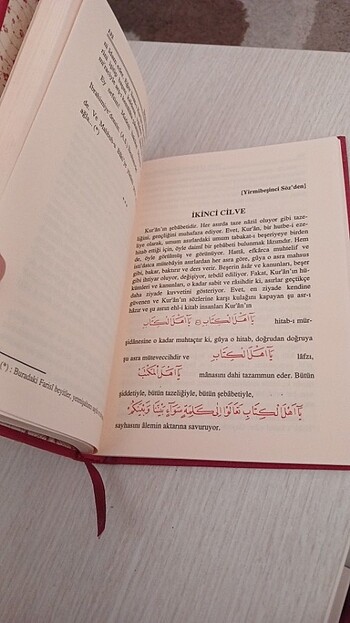 Ey
(*) : Buradaki Farisî beyitler,
[Yirmibeşinci Söz'den]
İKİNCİ CİLVE
Kur'ân'ın şebâbetidir. Her asırda taze nâzil oluyor gibi taze-
liğini, gençliğini muhafaza ediyor. Evet, Kur'ân, bir hutbe-i eze-
liye olarak, umum asırlardaki umum tabakat-ı beşeriyeye birden
hitab ettiği için, öyle daimî bir şebâbeti bulunmak lâzımdır. Hem
de, öyle görülmüş ve görünüyor. Hattâ, efkârca muhtelif ve
isti'datca mütebâyin asırlardan her asra göre, gûya o asra mahsus
gibi, bakar, baktırır ve ders verir. Beşerin âsâr ve kanunları, beşer
gibi ihtiyar oluyor, değişiyor, tebdil ediliyor. Fakat, Kur'ân'ın hü-
kümleri ve kanunları, o kadar sabit ve râsihdir ki, asırlar geçtikçe
daha ziyade kuvvetini gösteriyor. Evet, en ziyade kendine
güvenen ve Kur'ân'ın sözlerine karşı kulağını kapayan şu asr-ı
hâzır ve şu asrın ehl-i kitab insanları Kur'ân'ın
يَٓا اَهْلَ الْكِتَابِ يَٓا اَهْلَ الْكِتَابِ hitab-ı mür-
şidânesine o kadar muhtaçtır ki, gûya o hitab, doğrudan doğruya
şu asra müteveccihdir ve يَٓا اَهْلَ الْكِتَابِ lâfzı,
يَٓا اَهْلَ الْمَكْتَبِ mânasını dahi tazammun eder. Bütün
şiddetiyle, bütün tazeliğiyle, bütün şebâbetiyle,
يَٓا اَهْلَ الْكِتَابِ تَعَالَوْا اِلٰى كَلِمَةٍ سَوَٓاءٍ بَيْنَنَا وَبَيْنَكُمْ
sayhasını âlemin aktarına savuruyor.